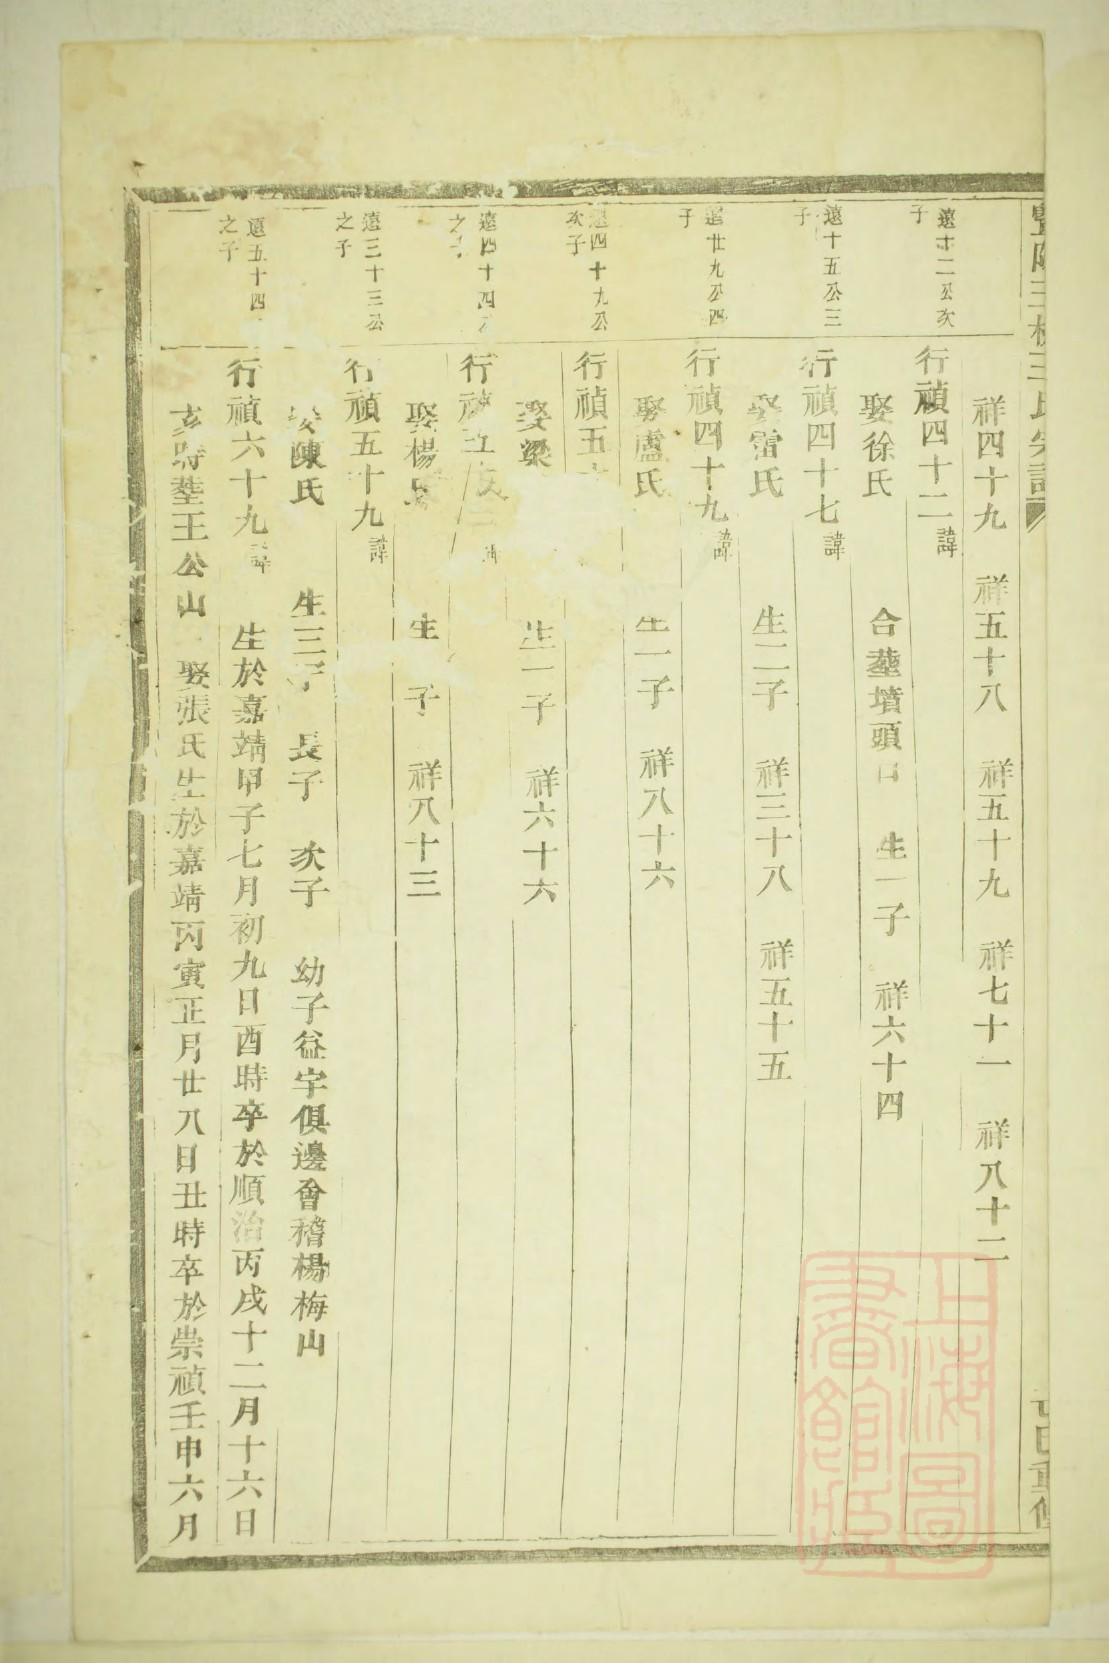 祥四十九　祥五十八　祥五十九　祥七十一　祥八十二
遠十二公次
子
行禎四十二諱
娶徐氏　合塟墳頭　生一子　祥六十四
遠十五公三
子
行禎四十七諱
娶雷氏　生二子　祥三十八　祥五十五
遠廿九公四
子
行禎四十九諱
娶盧氏　生一子　祥八十六
遠四十九公
次子
行禎五
娶梁　生一子　祥六十六
遠四十四
之子
行禎五
娶楊氏　生　子　祥八十三
遠三十三公
之子
行禎五十九諱
娶陳氏　生三子　長子　次子　幼子益字俱邊會稽楊梅山
遠五十四
之子
行禎六十九諱　生於嘉靖甲子七月初九日酉時卒於順治丙戌十二月十六日
亥時塟王公山　娶張氏生於嘉靖丙寅正月廿八日丑時卒於崇禎壬申六月
上海圖
書館藏